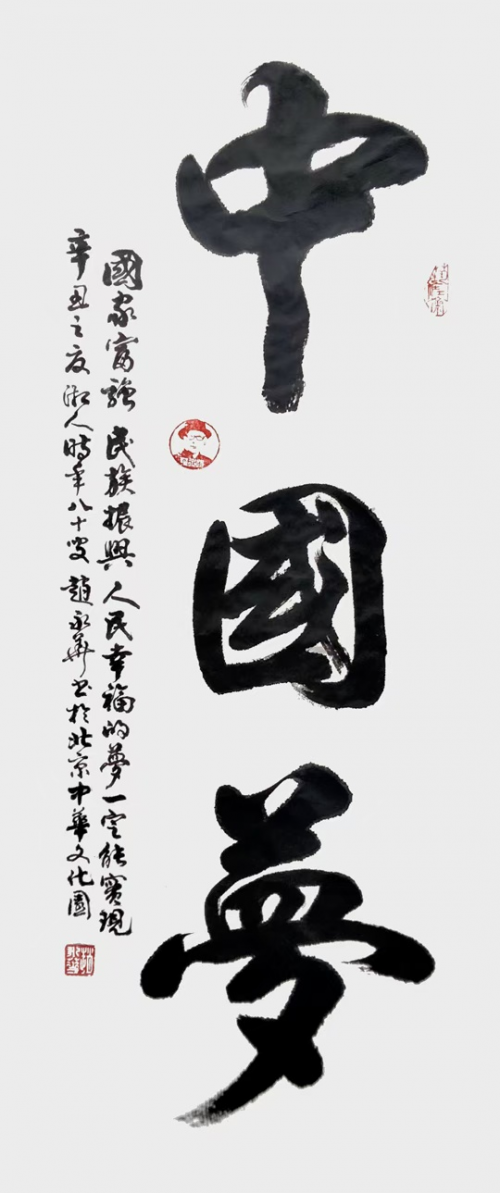 中國夢
國家富強 民族振興 人民幸福的夢一定能實現
辛丑之夏湘人時年八十叟趙永華书於北京中華文化園